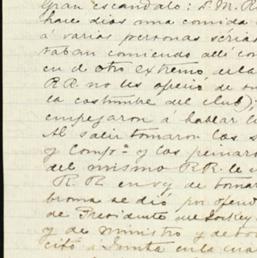 Gran escandalo: S. M. R
hace dias una comida
á varias personas serias
taban comiendo alli con
en el otro extremo de la
R.R. no les ofreció de su
la costumbre del club);
empezaron á hablar l
Al salir tomaron las s
y Comp.ª y los peinaro
del mismo R.R. le
R. R. en vez de tomar
broma se dió por ofend
de Presidente del Jockey
y de ministro y de
citó á Junta en la cua